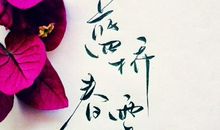 蓝桥
春雪